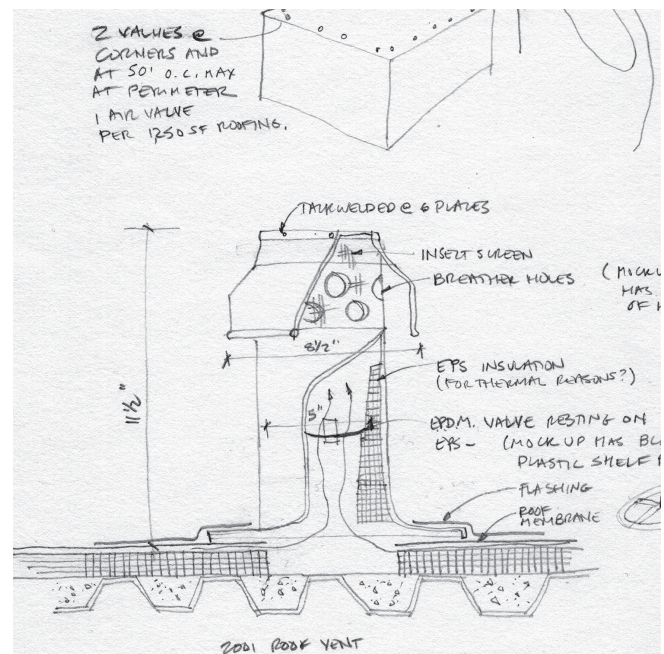 2 VALVES @
CORNERS AND
AT 50' O.C. MAX
AT PERIMETER
1 AIR VALVE
PER 1250 SF ROOFING.
TACKWELDED @ 6 PLACES
INSERT SCREEN
BREATHER HOLES
(MOCKU
HAS
OF H
8 1/2"
11 1/2"
EPS INSULATION
(FOR THERMAL REASONS?)
5"
EPDM. VALVE RESTING ON
EPS- (MOCK UP HAS BL
PLASTIC SHELF
FLASHING
ROOF
MEMBRANE
2001 ROOF VENT